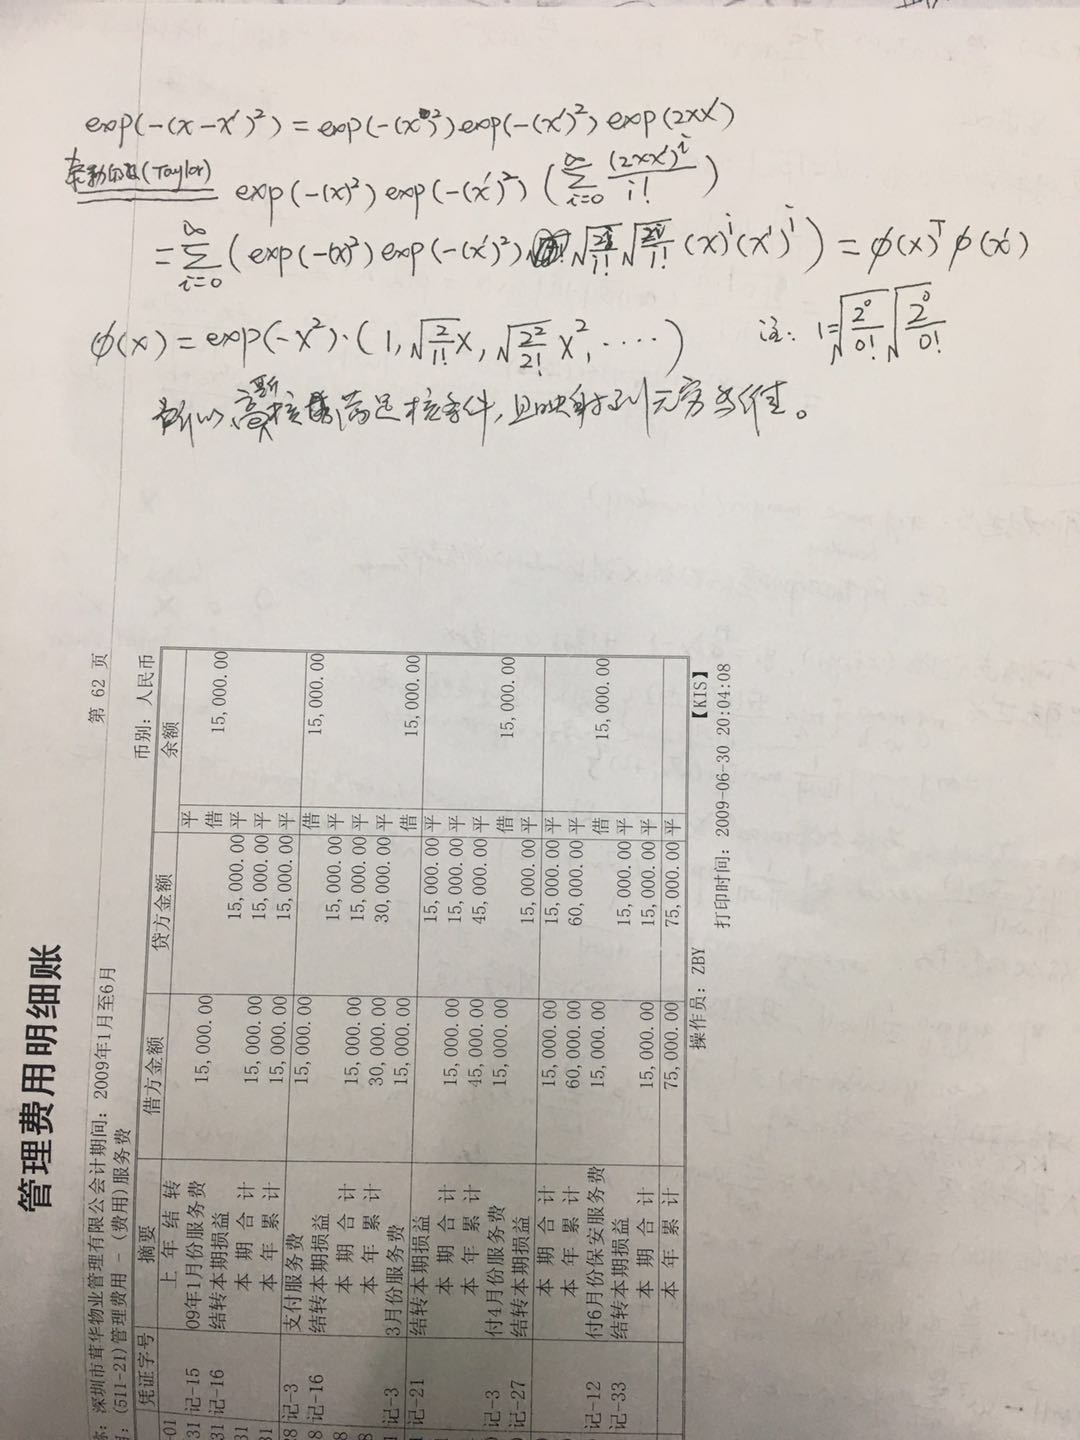 exp(-(x-x')²) = exp(-(x)²) exp(-(x')²) exp(2xx')
泰勒级数(Taylor) exp(-(x)²) exp(-(x')²) (∑_{i=0}^{∞} (2xx')^i / i!)
= ∑_{i=0}^{∞} (exp(-(x)²) exp(-(x')²) √(2^i/i!) √(2^i/i!) (x)^i (x')^i) = φ(x)^T φ(x')
φ(x) = exp(-x²)·(1, √(2/1!) x, √(2²/2!) x², ····) 注: 1=√(2⁰/0!) √(2⁰/0!)
所以,高斯核满足核条件,且映射到无穷多维。
管理费用明细账
第 62 页
深圳市茸华物业管理有限公会计期间: 2009年1月至6月
(511-21)管理费用 - (费用)服务费 币别: 人民币
凭证字号 摘要 借方金额 贷方金额 余额
-01 上 年 结 转 平
31 记-15 09年1月份服务费 15,000.00 借 15,000.00
31 记-16 结转本期损益 15,000.00 平
31 本 期 合 计 15,000.00 15,000.00 平
31 本 年 累 计 15,000.00 15,000.00 平
28 记-3 支付服务费 15,000.00 借 15,000.00
8 记-16 结转本期损益 15,000.00 平
8 本 期 合 计 15,000.00 15,000.00 平
8 本 年 累 计 30,000.00 30,000.00 平
记-3 3月份服务费 15,000.00 借 15,000.00
1 记-21 结转本期损益 15,000.00 平
本 期 合 计 15,000.00 15,000.00 平
本 年 累 计 45,000.00 45,000.00 平
记-3 付4月份服务费 15,000.00 借 15,000.00
记-27 结转本期损益 15,000.00 平
本 期 合 计 15,000.00 15,000.00 平
本 年 累 计 60,000.00 60,000.00 平
记-12 付6月份保安服务费 15,000.00 借 15,000.00
记-33 结转本期损益 15,000.00 平
本 期 合 计 15,000.00 15,000.00 平
本 年 累 计 75,000.00 75,000.00 平
操作员: ZBY 【KIS】
打印时间: 2009-06-30 20:04:08